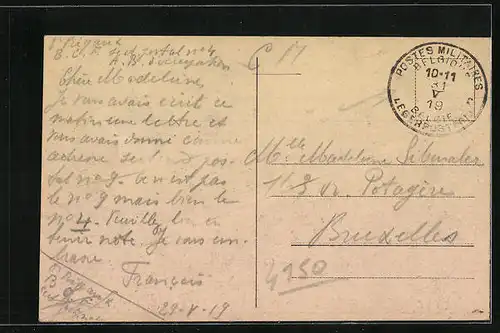 B.C.K. sect. postal no 4
A.B. d'occupation
Chère Madeleine
Je vous avais écrit ce
matin une lettre et
vous avais donné comme
adresse sect pos-
tal no 9. Ce n'est pas
le no 9 mais bien le
no 4. Veuillez bien en
tenir note. Je vous em-
brasse.
François
29-V-19
C M
POSTES MILITAIRES
BELGIQUE
10-11
31
V
19
BELGIE
LEGERPOSTERIJ
Mlle Madeleine
Potagère
Bruxelles
4950